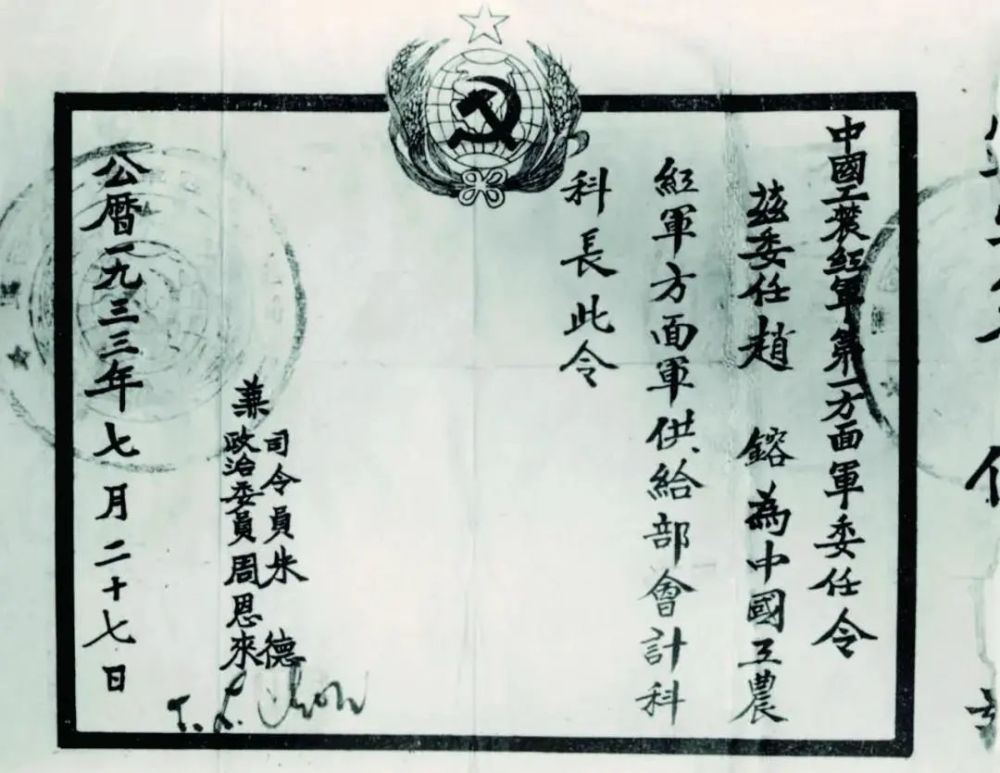 中國工農紅軍第一方面軍委任令
茲委任趙鎔為中國工農
紅軍方面軍供給部會計科
科長此令
司令員朱德
兼政治委員周恩來
公曆一九三三年七月二十七日